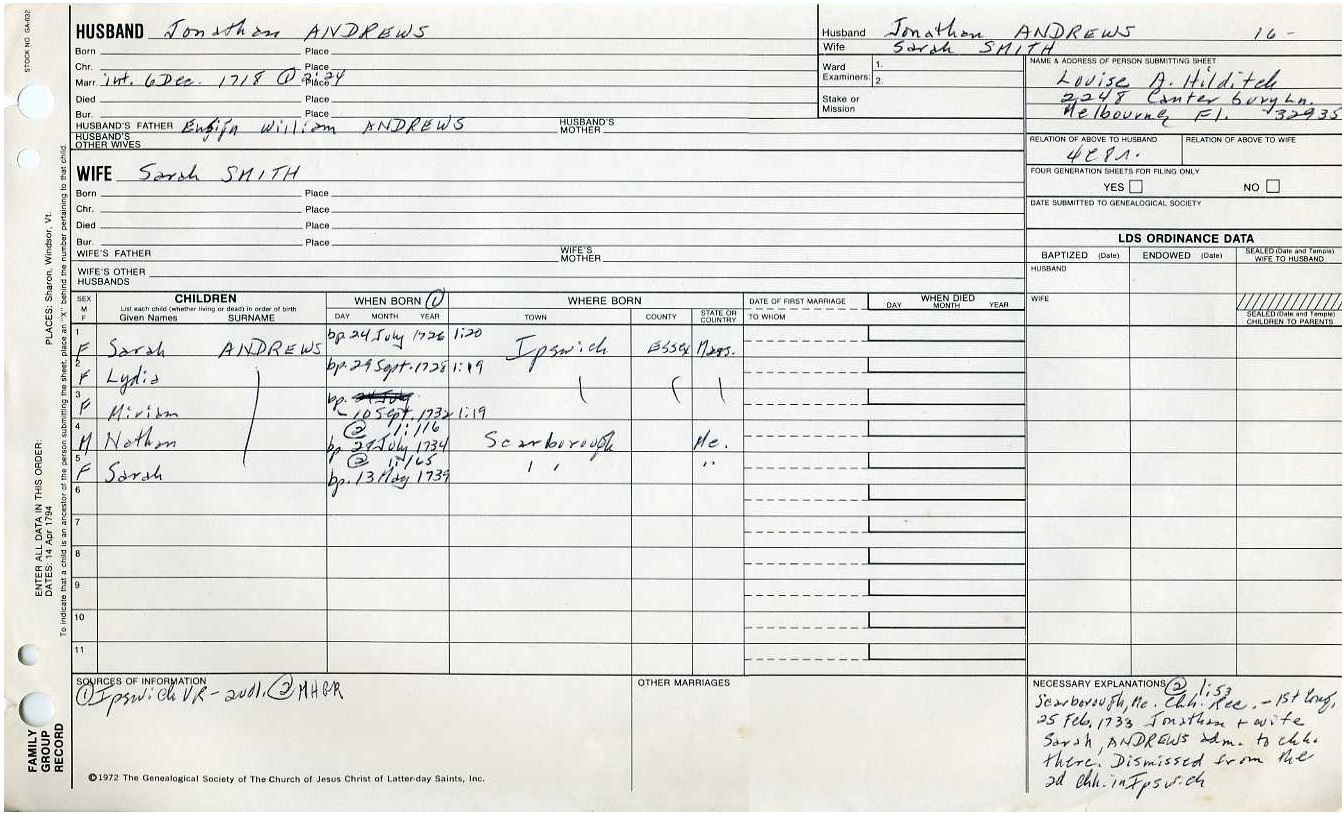 STOCK NO. GA-032
HUSBAND Jonathan ANDREWS
Born Place
Chr. Place
Marr. int. 6 Dec. 1718 ① 2:24 Place
Died Place
Bur. Place
HUSBAND'S FATHER Ensign William ANDREWS HUSBAND'S MOTHER
HUSBAND'S OTHER WIVES
WIFE Sarah SMITH
Born Place
Chr. Place
Died Place
Bur. Place
WIFE'S FATHER WIFE'S MOTHER
WIFE'S OTHER HUSBANDS
Husband Jonathan ANDREWS 16-
Wife Sarah SMITH
Ward 1.
Examiners: 2.
Stake or Mission
NAME & ADDRESS OF PERSON SUBMITTING SHEET
Louise A. Hilditch
2248 Canterbury Ln.
Melbourne, Fl. 32935
RELATION OF ABOVE TO HUSBAND RELATION OF ABOVE TO WIFE
FOUR GENERATION SHEETS FOR FILING ONLY
YES NO
DATE SUBMITTED TO GENEALOGICAL SOCIETY
LDS ORDINANCE DATA
BAPTIZED (Date) ENDOWED (Date) SEALED (Date and Temple) WIFE TO HUSBAND
HUSBAND
WIFE
SEALED (Date and Temple) CHILDREN TO PARENTS
SEX M F
CHILDREN
List each child (whether living or dead) in order of birth
Given Names SURNAME
WHEN BORN ①
DAY MONTH YEAR
WHERE BORN
TOWN COUNTY STATE OR COUNTRY
DATE OF FIRST MARRIAGE
TO WHOM
WHEN DIED
DAY MONTH YEAR
1 F Sarah ANDREWS bp. 24 July 1726 1:20 Ipswich Essex Mass.
2 F Lydia bp. 29 Sept. 1728 1:19
3 F Miriam bp. 10 Sept. 1732 1:19
4 M Nathan ② 1:116 bp. 28 July 1734 Scarborough Me.
5 F Sarah ② 1:165 bp. 13 May 1739 " " "
6
7
8
9
10
11
SOURCES OF INFORMATION
① Ipswich VR - 2 vol. ② MHGR
OTHER MARRIAGES
NECESSARY EXPLANATIONS ② 1:53
Scarborough, Me. Chh. Rec. - 1st Cong.
25 Feb. 1733 Jonathan + wife
Sarah ANDREWS adm. to chh.
there. Dismissed from the
2d chh. in Ipswich
©1972 The Genealogical Society of The Church of Jesus Christ of Latter-day Saints, Inc.
FAMILY GROUP RECORD
ENTER ALL DATA IN THIS ORDER:
DATES: 14 Apr 1794
PLACES: Sharon, Windsor, Vt.
To indicate that a child is an ancestor of the person submitting the sheet, place an "X" behind the number pertaining to that child.